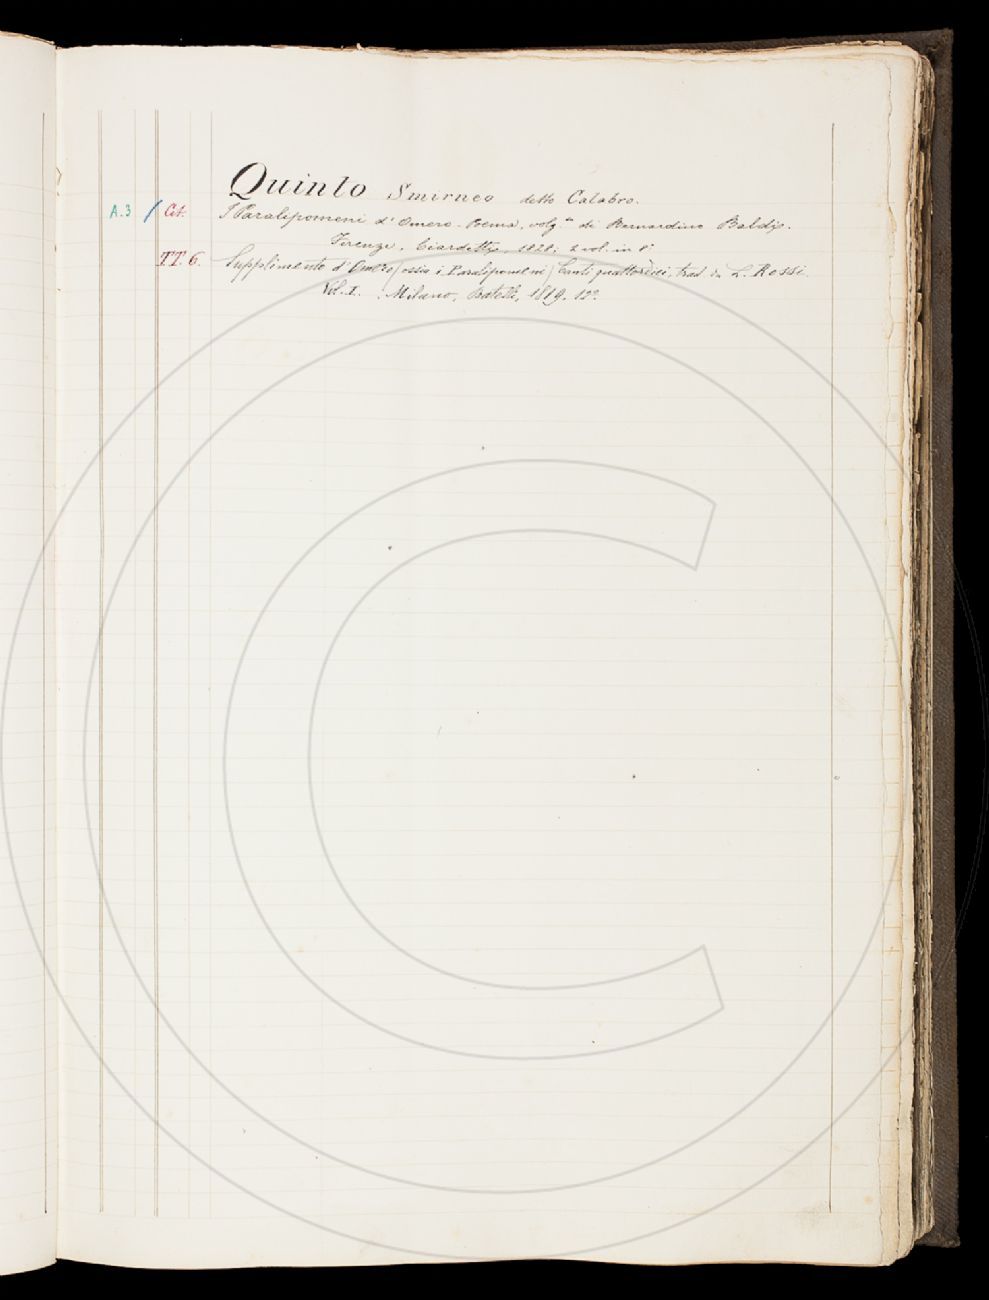 Quinto Smirneo detto Calabro.
A.3 / Cit. I Paralipomeni d'Omero. Poema, volg.to di Bernardino Baldi.
Firenze, Ciardetti, 1828, 2 vol. in 8°
TT. 6. Supplimento d'Omero (ossia i Paralipomeni) Canti quattordici, trad. da L. Rossi.
Vol. I. Milano, 1819. 12°.